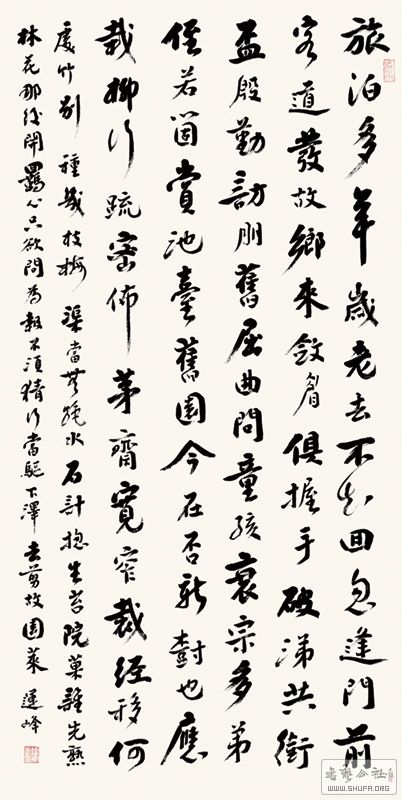 旅泊多年歲老去不知囬忽逢門前
客道發故鄉來斂眉俱握手破涕共銜
盃殷勤訪朋舊屈曲問童孩衰宗多弟
侄若箇賞池臺舊園今在否新樹也應
栽柳行疏密佈茅齋寬窄裁經移何
處竹別種幾枝梅渠當無絕水石計總生苔院菓誰先熟
林花那後開羈心只欲問為報不須猜行當驅下澤去剪故園萊 蓮峰
書藝公社
WWW.SHUFA.ORG